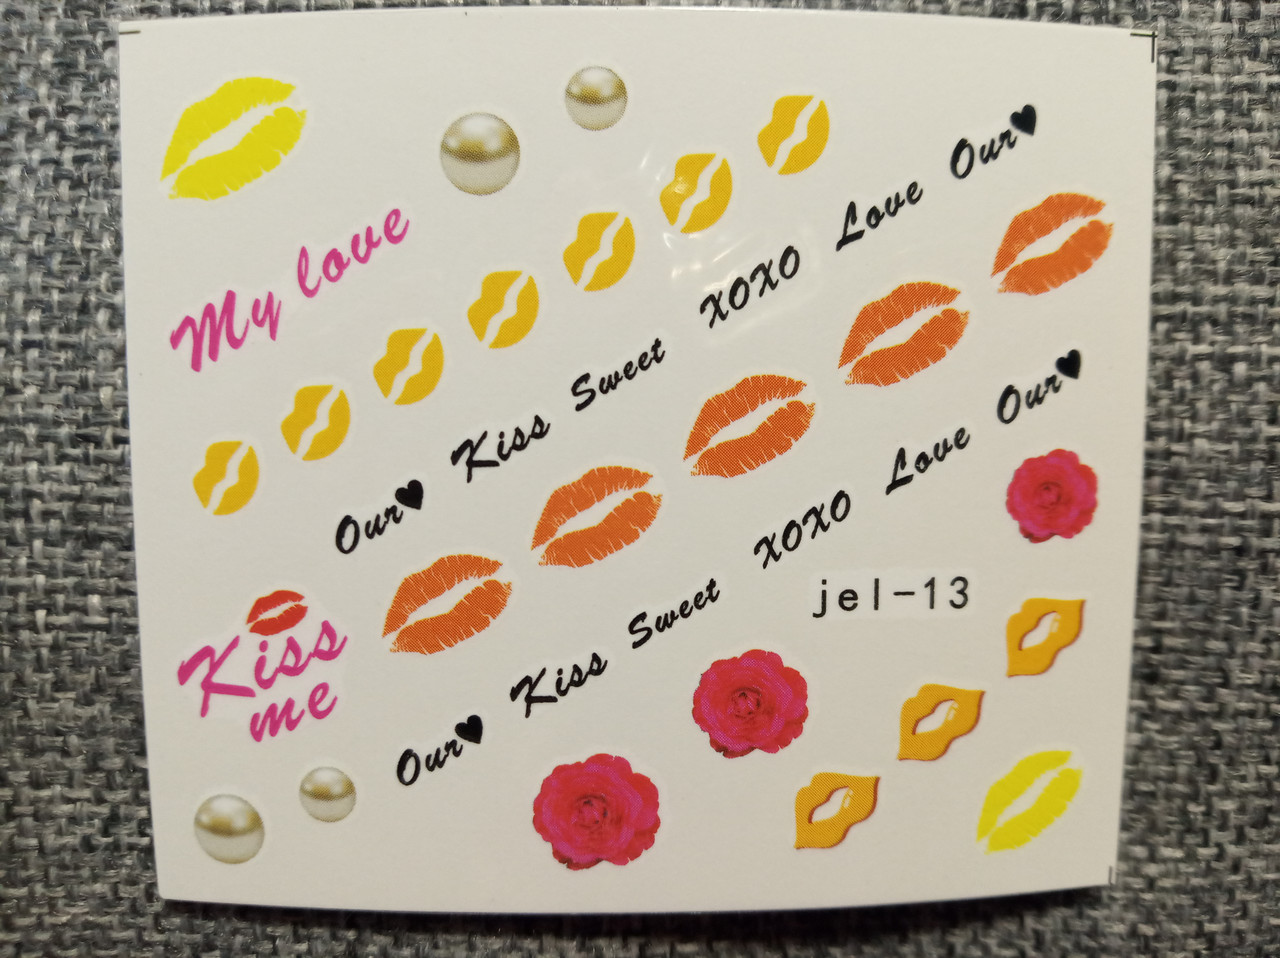 My love
Our♥ Kiss Sweet XOXO Love Our♥
Our♥ Kiss Sweet XOXO Love Our♥
jel-13
Kiss
me